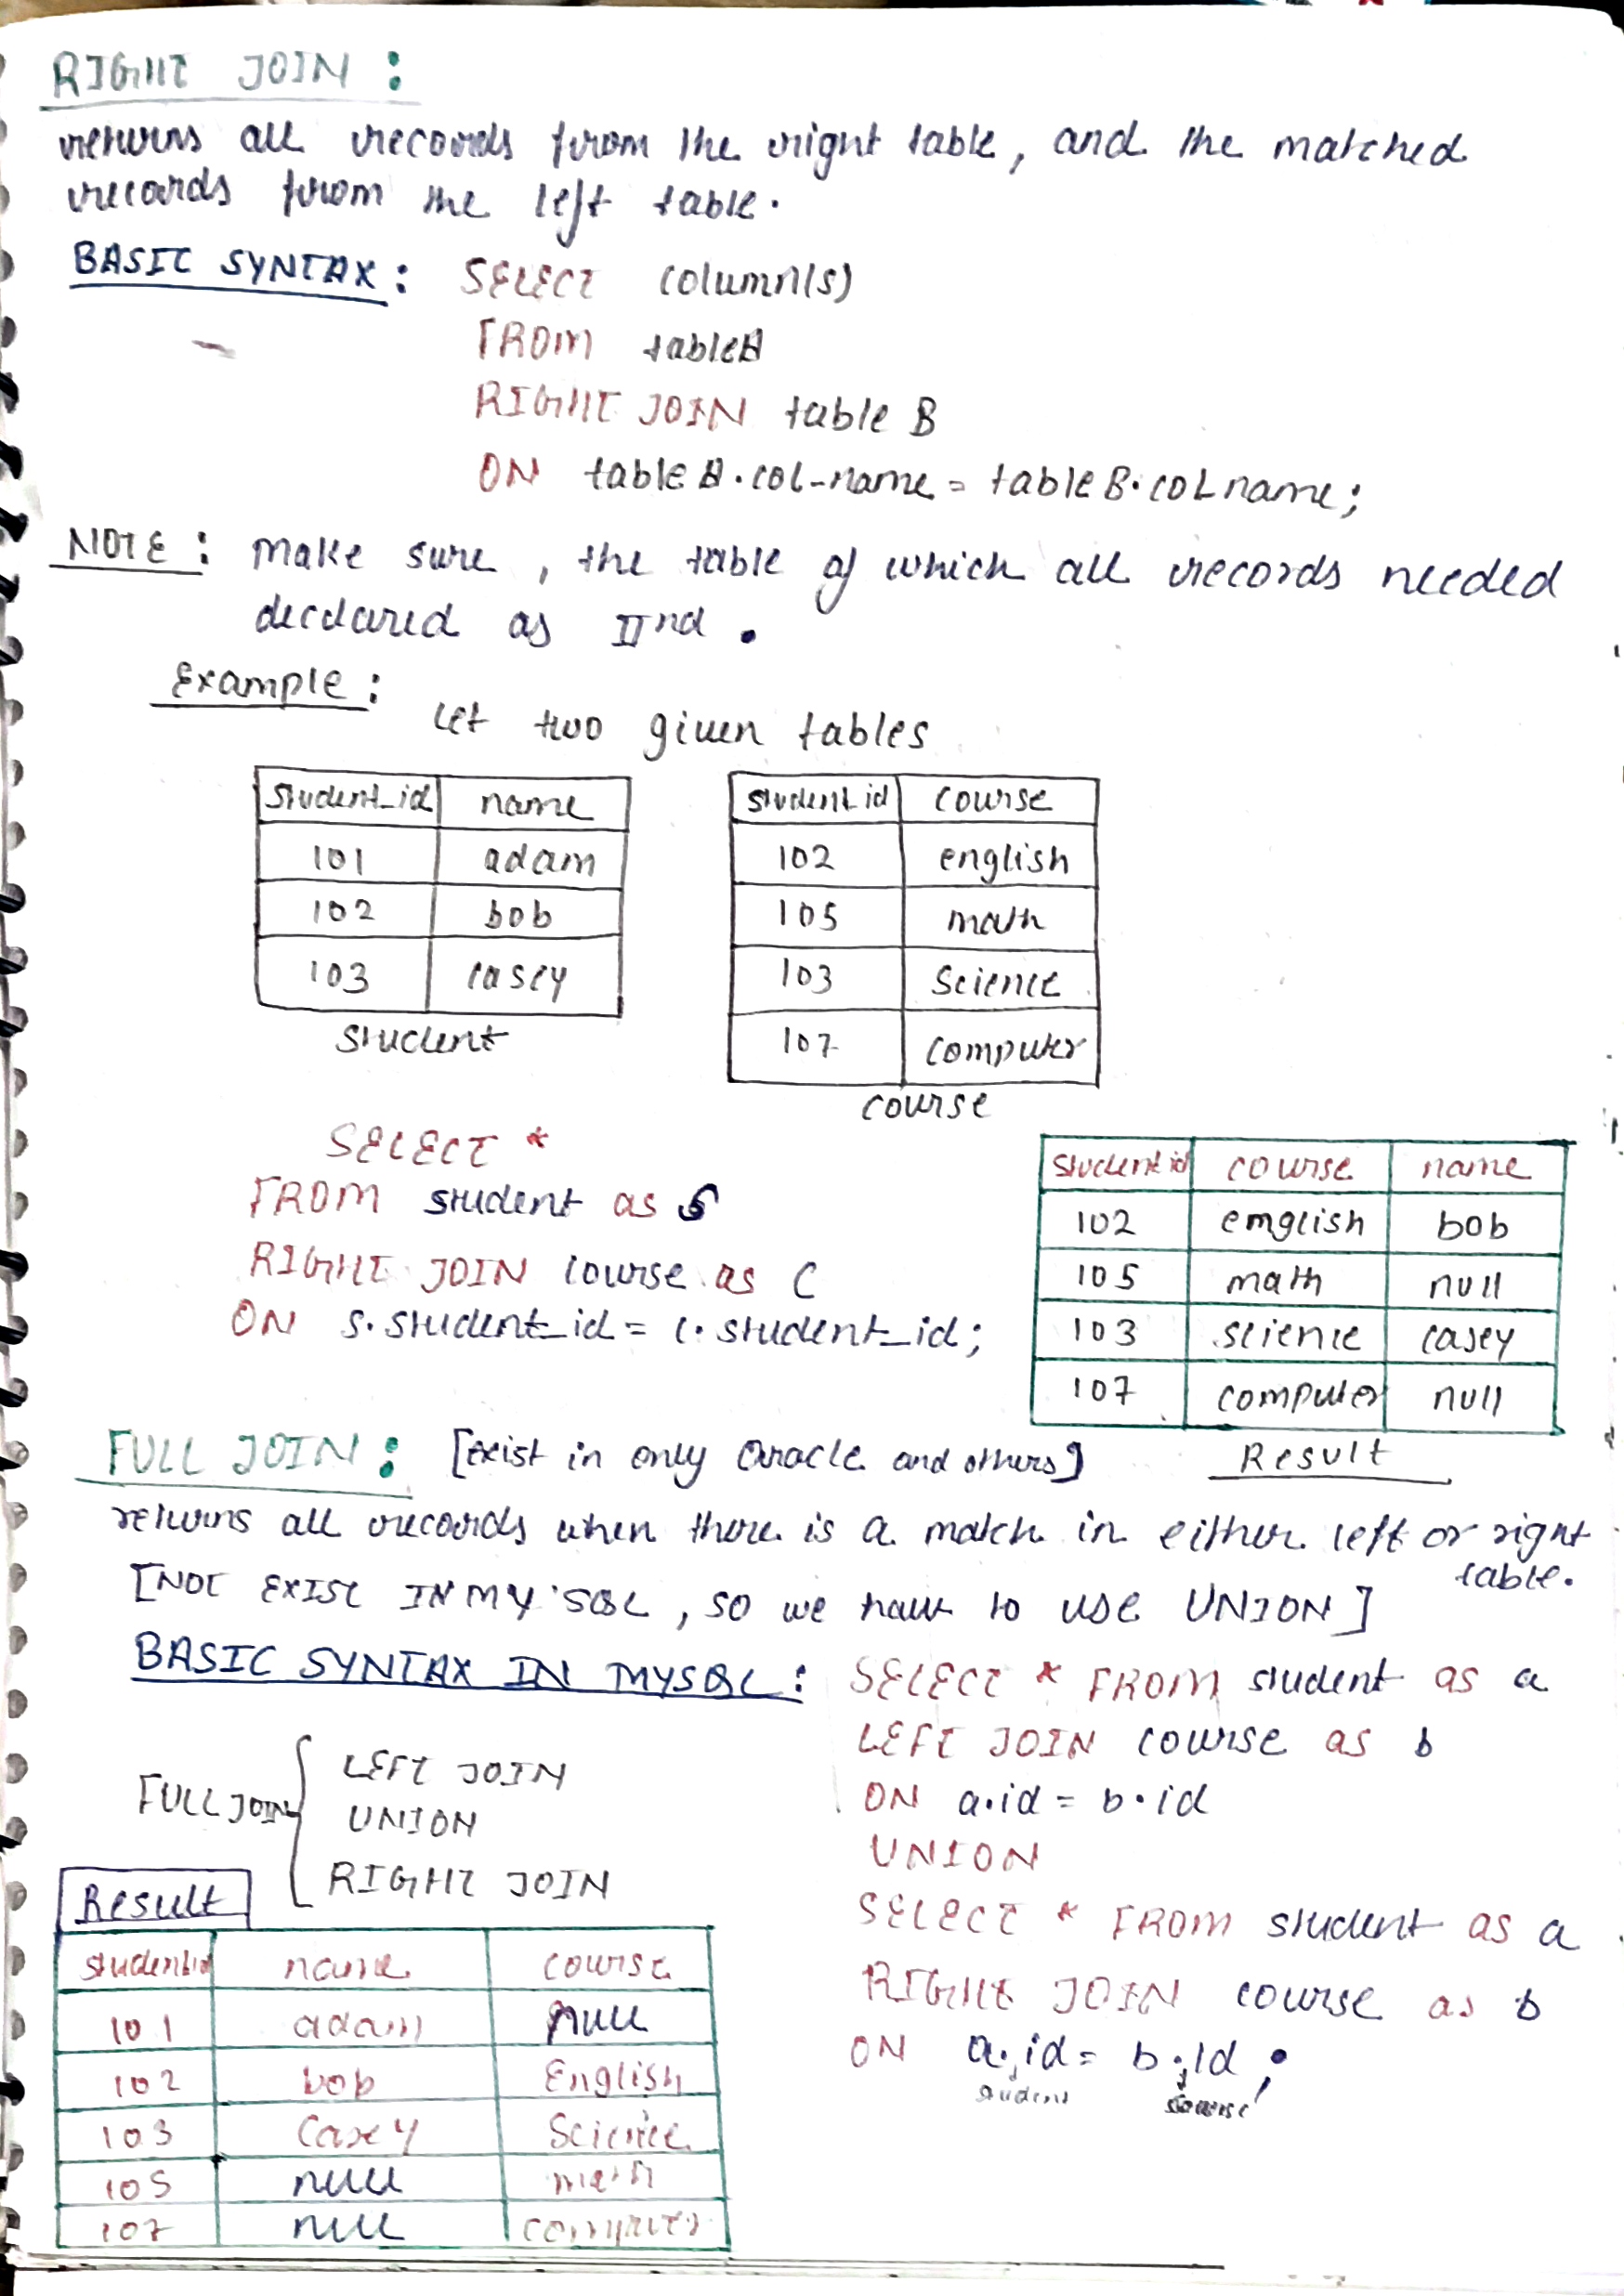 RIGHT JOIN :
returns all records from the right table, and the matched
records from the left table.
BASIC SYNTAX : SELECT column(s)
FROM tableA
RIGHT JOIN table B
ON tableA.col-name = tableB.colname;
NOTE : make sure, the table of which all records needed
declared as IInd.
Example :
Let two given tables
student_id name
101 adam
102 bob
103 casey
student
student id course
102 english
105 math
103 Science
107 computer
course
SELECT *
FROM student as S
RIGHT JOIN course as C
ON s.student_id = c.student_id;
student id course name
102 english bob
105 math null
103 science casey
107 computer null
Result
FULL JOIN : [Exist in only Oracle and others]
returns all records when there is a match in either left or right
table.
[NOT EXIST IN MY SQL, so we have to use UNION]
BASIC SYNTAX IN MYSQL : SELECT * FROM student as a
LEFT JOIN course as b
ON a.id = b.id
UNION
SELECT * FROM student as a
RIGHT JOIN course as b
ON a.id = b.id ;
student course
FULL JOIN
LEFT JOIN
UNION
RIGHT JOIN
Result
student id name course
101 adam null
102 bob English
103 Casey Science
105 null math
107 null computer